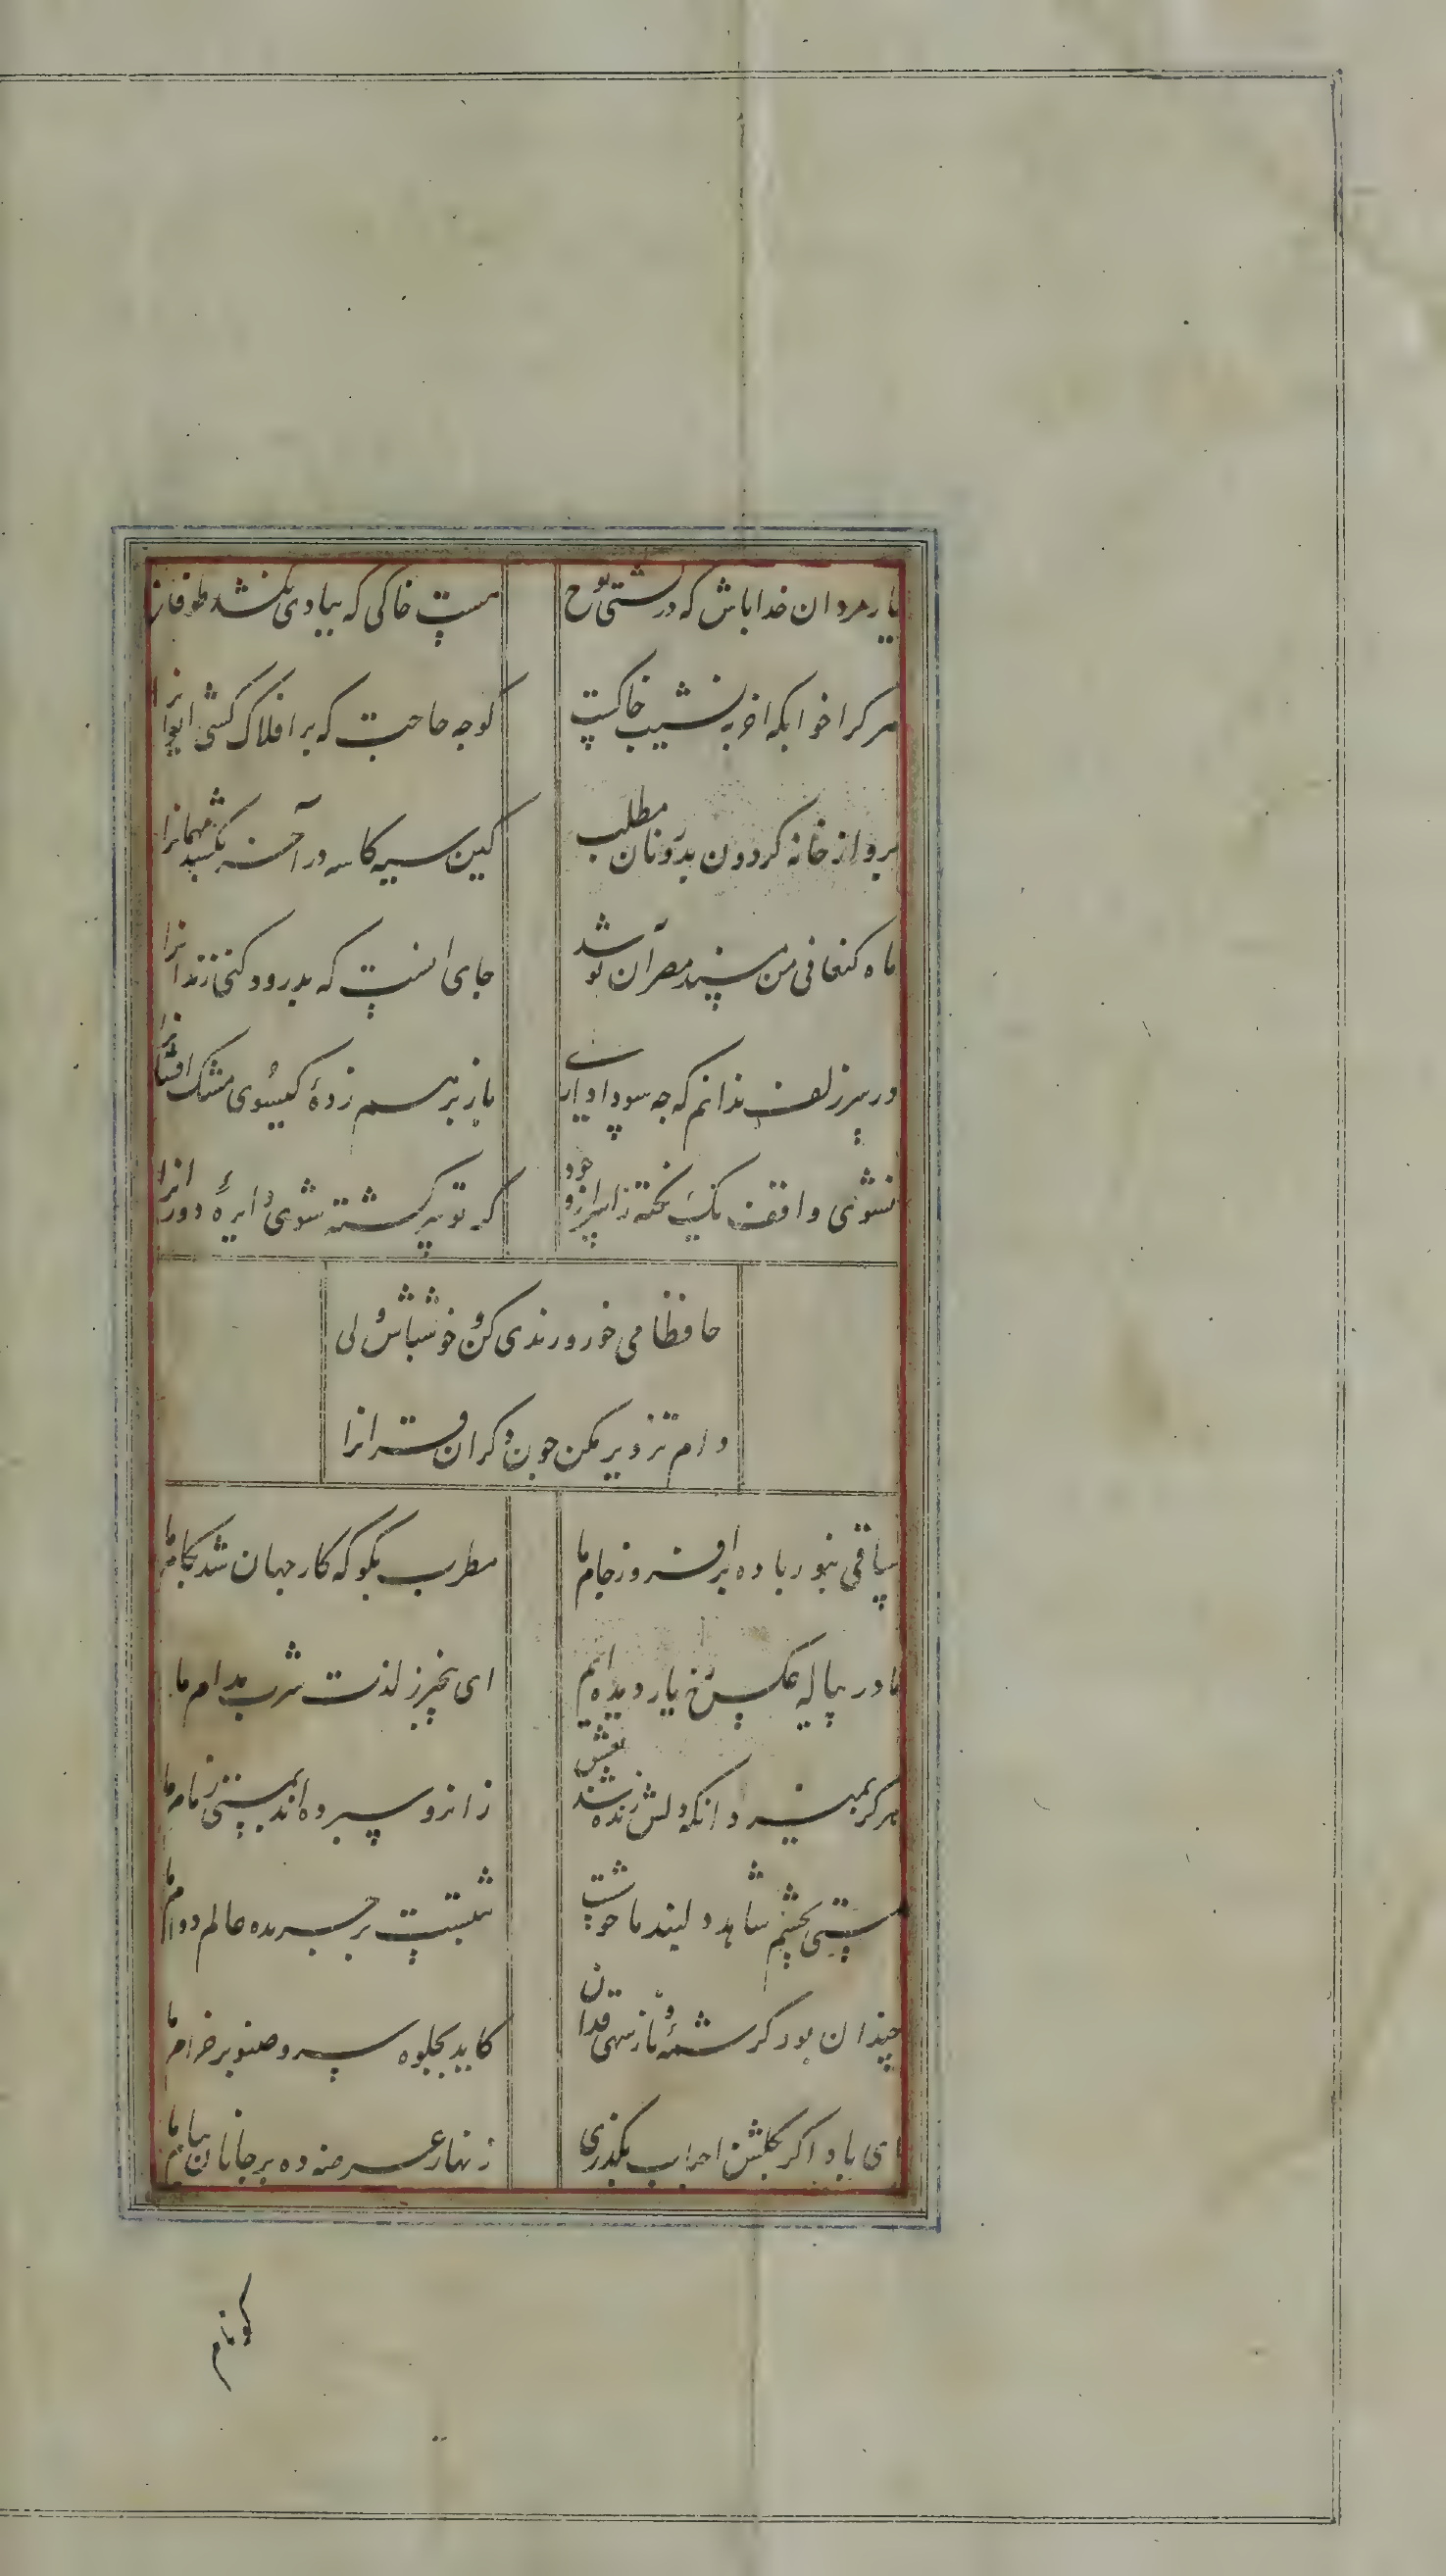 یار مردان خدا باش که در کشتی نوح
هست خاکی که بیادی نخشد طوفانرا
هر کرا خوابکه اخر به نشیب خاکست
کو جه حاجت که بر افلاک کشی ایوانرا
برو از خانه کردون بدر و نان مطلب
کین سیه کاسه در آخر بکشد مهمانرا
ماه کنعانی من مسند مصر آن تو شد
جای انست که بدرود کنی زندانرا
در سر زلف ندانم که جه سودا داری
باز برهم زدهٔ کیسوی مشک افشانرا
نشوی واقف یک نکته ز اسرار وجود
کر تو سرکشته شوی دایرهٔ دورانرا
حافظا می خور و رندی کن و خوشباش ولی
دام تزویر مکن جون دکران قرانرا
ساقی بنور باده برافروز جام ما
مطرب بکو که کار جهان شد بکام ما
ما در پیاله عکس رخ یار دیده ایم
ای بیخبر ز لذت شرب مدام ما
هرکز نمیرد انکه دلش زنده شد بعشق
زانرو سپرده اند بمستی زمام ما
مستی بچشم شاهد دلبند ما خوشست
ثبتست بر جریده عالم دوام ما
چندان بود کرشمهٔ و ناز سهی قدان
کاید بجلوه سرو صنوبر خرام ما
ای باد اکر بکلشن احباب بکذری
زنهار عرضه ده بر جانان پیام ما
کو نام